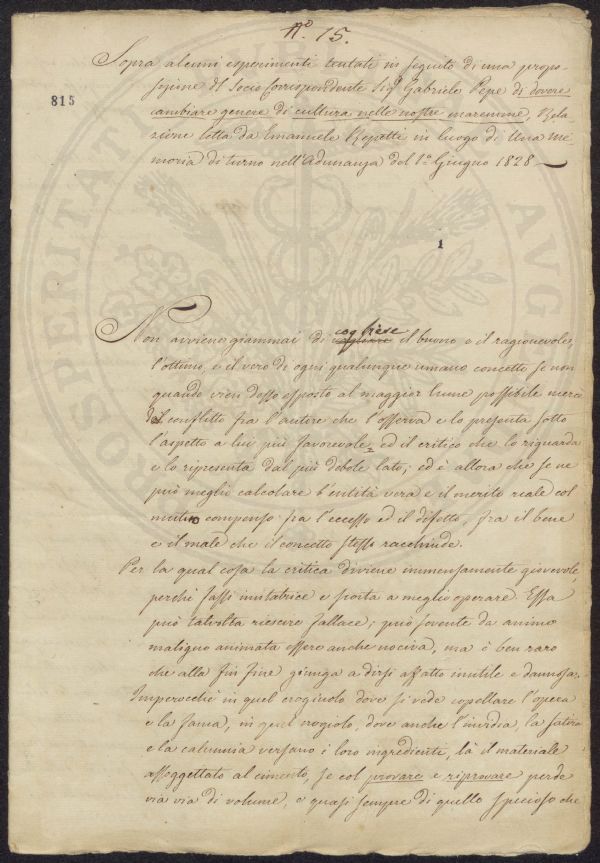 N.° 15.
Sopra alcuni esperimenti tentati in seguito di una propo-
sizione del Socio Corrispondente Sig. Gabriele Pepe di dovere
815
cambiare genere di cultura nelle nostre maremme, Rela-
zione letta da Emanuele Repetti in luogo di Una Me-
moria di turno nell'Adunanza del 1.° Giugno 1828 —
1
cogliere
Non avviene giammai di il buono e il ragionevole,
l'ottimo, e il vero di ogni qualunque umano concetto se non
quando vien desso esposto al maggior lume possibile mercè
del conflitto fra l'autore che l'osserva e lo presenta sotto
l'aspetto a lui più favorevole, ed il critico che lo riguarda
e lo ripresenta dal più debole lato; ed è allora che se ne
può meglio calcolare l'entità vera e il merito reale col
mutuo compenso fra l'eccesso ed il difetto, fra il bene
e il male che il concetto stesso racchiude.
Per la qual cosa la critica diviene immensamente giovevole
perchè fassi imitatrice e sporta a meglio operare. Essa
può talvolta riescire fallace; può sovente da animo
maligno animata essere anche nociva, ma è ben raro
che alla fin fine giunga a dirsi affatto inutile e dannosa.
Imperocchè in quel crogiuolo dove si vede copellare l'opera
e la fama, in quel crogiolo, dove anche l'invidia, la satira
e la calunnia versano i loro ingrediente, là il materiale
assoggettato al cimento, se col provare e riprovare perde
via via di volume, e quasi sempre di quello specioso che